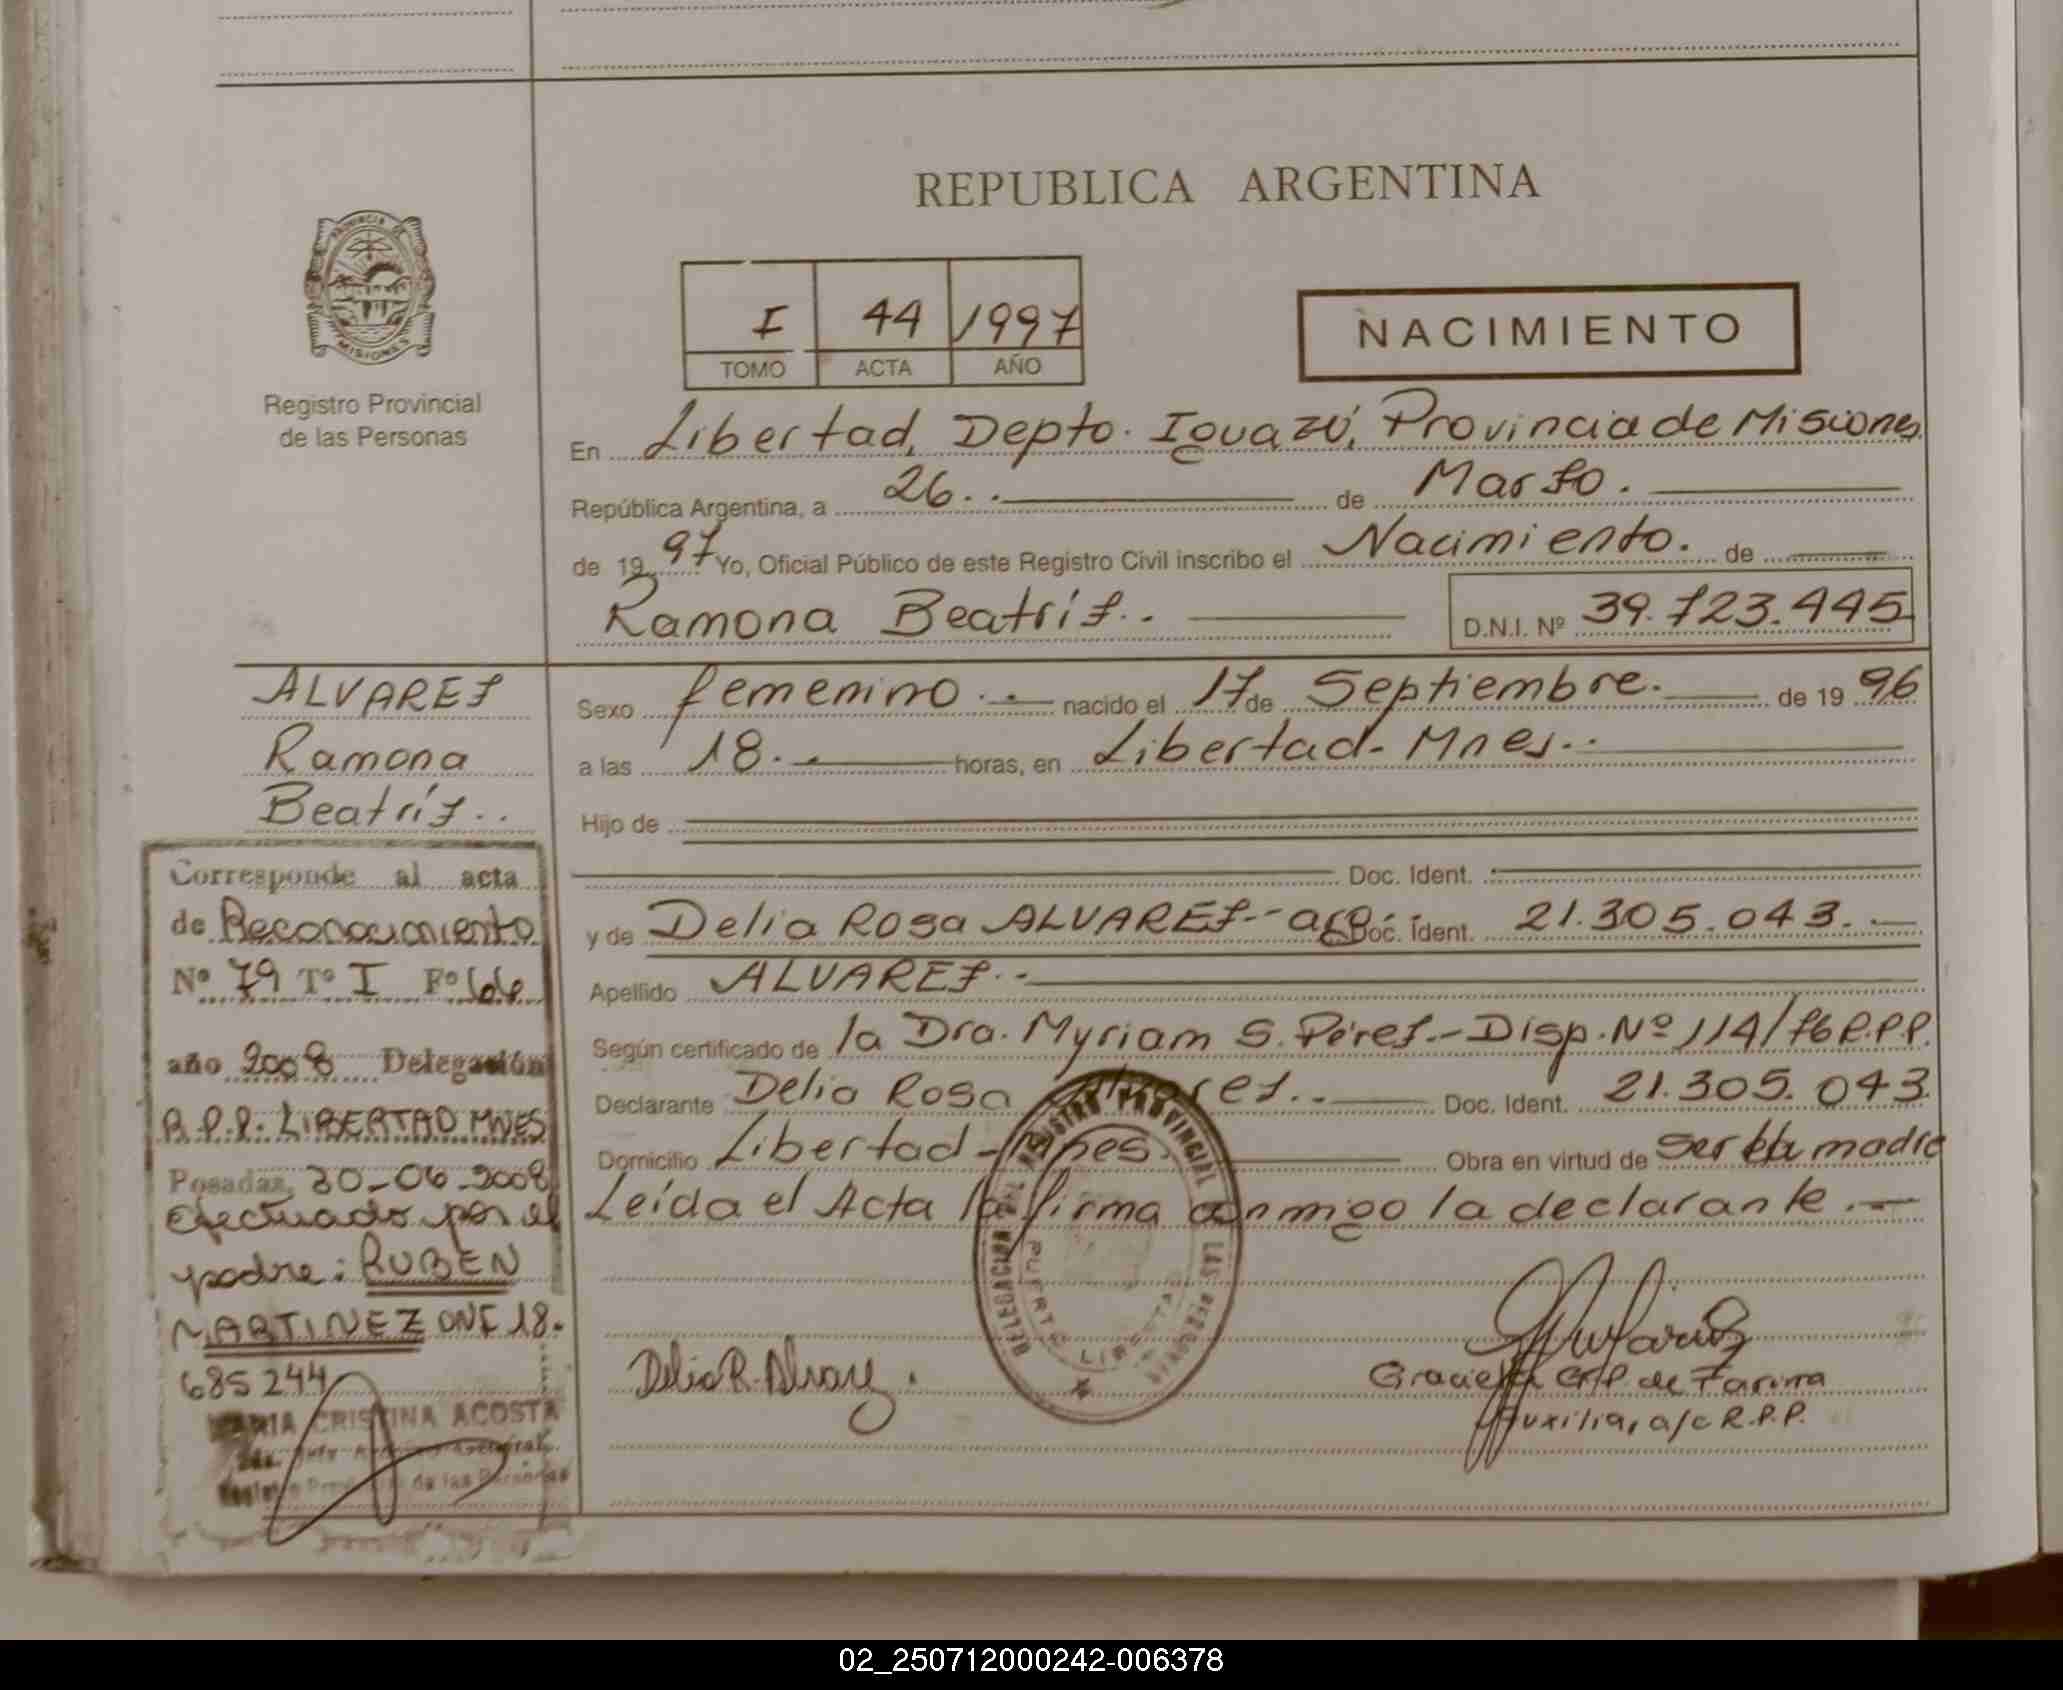 REPUBLICA ARGENTINA
PROVINCIA DE
MISIONES
Registro Provincial
de las Personas
I 44 1997
TOMO ACTA AÑO
NACIMIENTO
En Libertad, Depto. Iguazú, Provincia de Misiones
República Argentina, a 26. de Marzo.
de 1997 Yo, Oficial Público de este Registro Civil inscribo el Nacimiento. de
Ramona Beatríz.. D.N.I. Nº 39.723.445
ALVAREZ
Ramona
Beatríz..
Sexo femenino.. nacido el 17 de Septiembre. de 19 96
a las 18. horas, en Libertad- Mnes..
Hijo de
Doc. Ident.
y de Delia Rosa ALVAREZ-- arg Doc. Ident. 21.305.043.
Apellido ALVAREZ..
Según certificado de la Dra. Myriam S. Pérez.- Disp. Nº 114/76 R.P.P.
Declarante Delia Rosa Alvarez.. Doc. Ident. 21.305.043.
Domicilio Libertad- Mnes. Obra en virtud de ser la madre
Leída el Acta la firma conmigo la declarante.
Corresponde al acta
de Reconocimiento
Nº 79 Tº I Fº 66
año 2008 Delegación
R.P.P. LIBERTAD MNES
Posadas, 30-06-2008
Efectuado por el
padre: RUBEN
MARTINEZ DNI 18.
685244
MARIA CRISTINA ACOSTA
Registro Provincial de las Personas
DELEGACION REGISTRO PROVINCIAL DE LAS PERSONAS
PUERTO LIBERTAD
Delia R. Alvarez.
Graciela de Farina
Auxiliar a/c R.P.P.
02_250712000242-006378